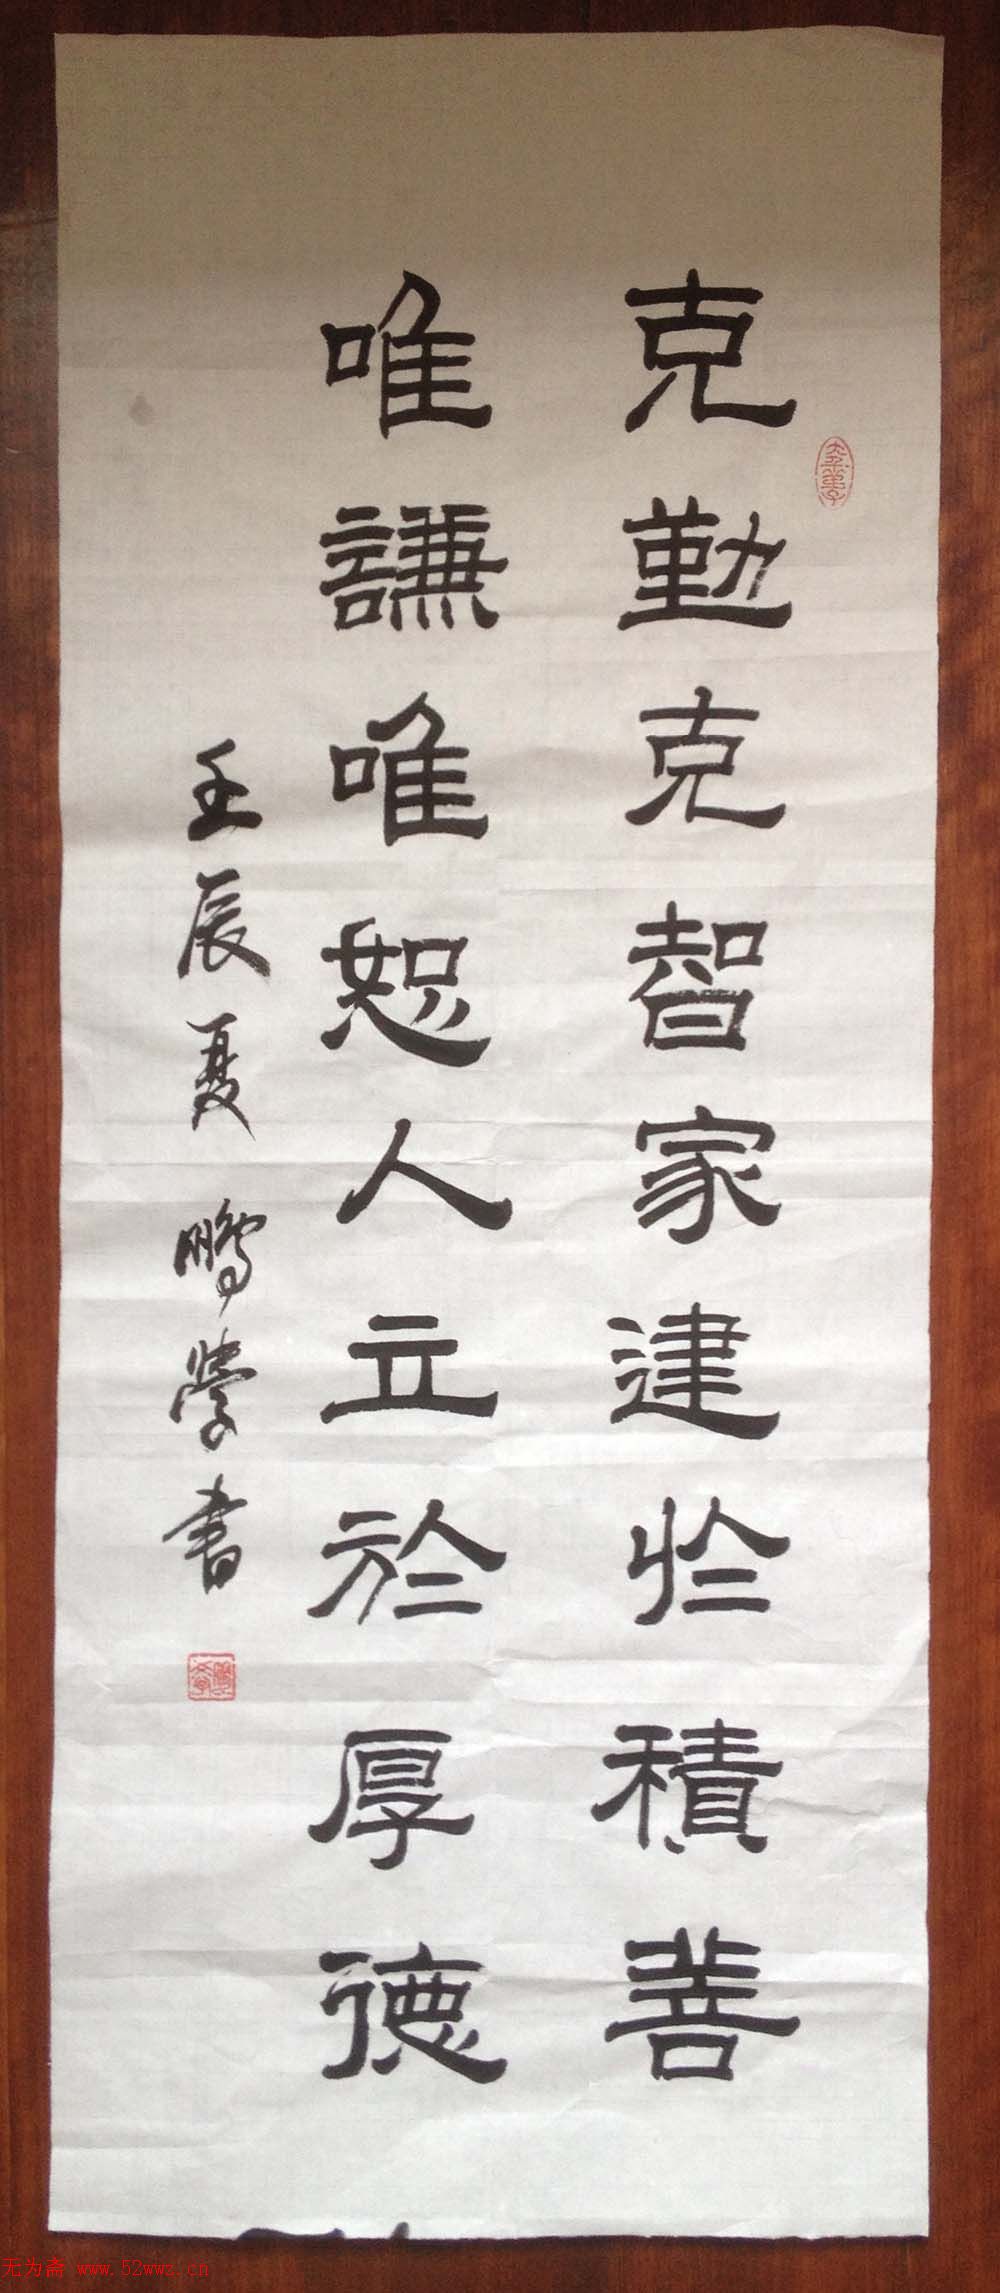 克勤克智家建於積善
唯謙唯恕人立於厚德
壬辰夏 鵬學書
无为斋 www.52wwz.cn